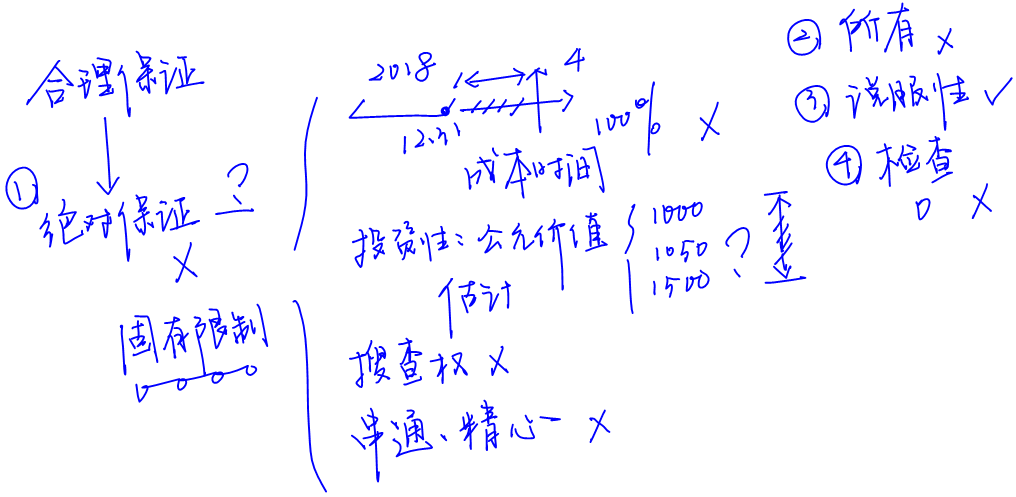 合理保证
① 绝对保证 ?
×
固有限制
2018 4
12.31
100% ×
成本时间
投资性:公允价值 1000
1050 ?
1500
估计
搜查权 ×
串通、精心 ×
② 所有 ×
③ 说服性 ✓
④ 检查 ×